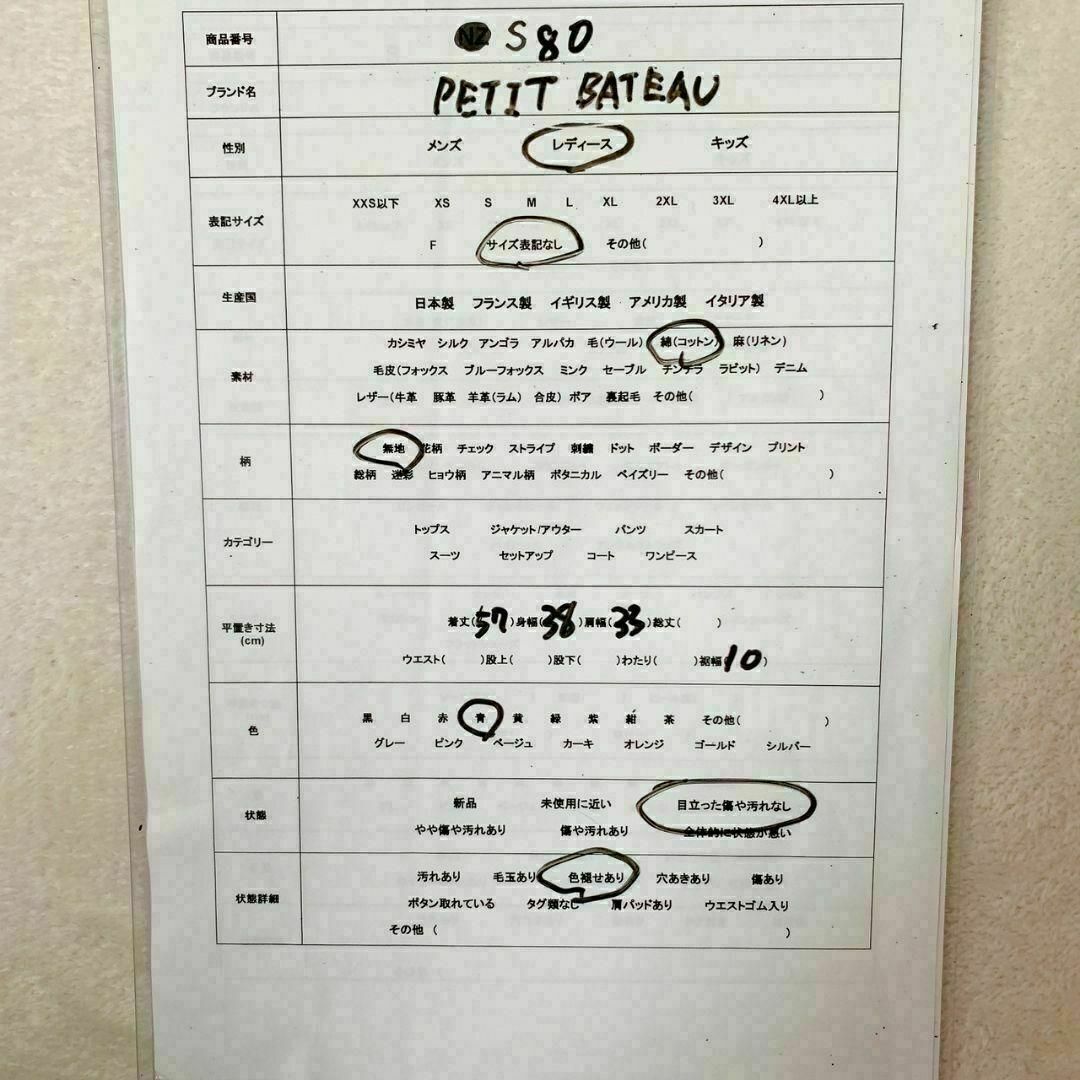 商品番号 NZ S80
ブランド名 PETIT BATEAU
性別 メンズ レディース キッズ
表記サイズ XXS以下 XS S M L XL 2XL 3XL 4XL以上
F サイズ表記なし その他( )
生産国 日本製 フランス製 イギリス製 アメリカ製 イタリア製
素材 カシミヤ シルク アンゴラ アルパカ 毛(ウール) 綿(コットン) 麻(リネン)
毛皮(フォックス ブルーフォックス ミンク セーブル チンチラ ラビット) デニム
レザー(牛革 豚革 羊革(ラム) 合皮) ボア 裏起毛 その他( )
柄 無地 花柄 チェック ストライプ 刺繍 ドット ボーダー デザイン プリント
総柄 迷彩 ヒョウ柄 アニマル柄 ボタニカル ペイズリー その他( )
カテゴリー トップス ジャケット/アウター パンツ スカート
スーツ セットアップ コート ワンピース
平置き寸法 (cm) 着丈(57)身幅(38)肩幅(33)総丈( )
ウエスト( )股上( )股下( )わたり( )裾幅(10)
色 黒 白 赤 青 黄 緑 紫 紺 茶 その他( )
グレー ピンク ベージュ カーキ オレンジ ゴールド シルバー
状態 新品 未使用に近い 目立った傷や汚れなし
やや傷や汚れあり 傷や汚れあり 全体的に状態が悪い
状態詳細 汚れあり 毛玉あり 色褪せあり 穴あきあり 傷あり
ボタン取れている タグ類なし 肩パッドあり ウエストゴム入り
その他 ( )